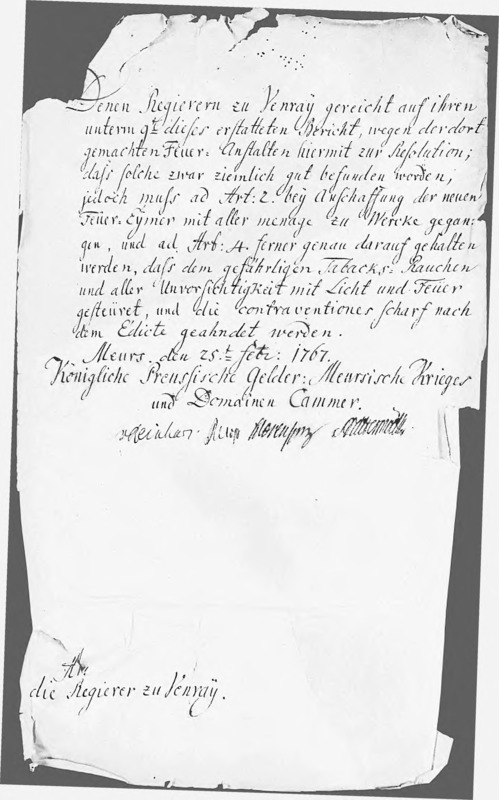 Denen Regierern zu Venraÿ gereicht auf ihren
unterm 9t. dieses erstatteten Bericht, wegen der dort
gemachten Feuer: Anstalten hiermit zur Resolution;
dass solche zwar ziemlich gut befunden worden,
jedoch muss ad Art: 2. beÿ Anschaffung der neuen
Feuer-Eÿmer mit aller menage zu Wercke gegan-
gen, und ad Art: 4. ferner genau darauf gehalten
werden, dass dem gefährligen Tabacks: Rauchen
und aller Unvorsichtigkeit mit Licht und Feuer
gesteüret, und die contraventiones scharf nach
dem Edicte geahndet werden.
Meurs den 25.t febr: 1767.
Königliche Preussische Gelder: Meursische Krieges
und Domainen Cammer.
An
die Regierer zu Venraÿ.